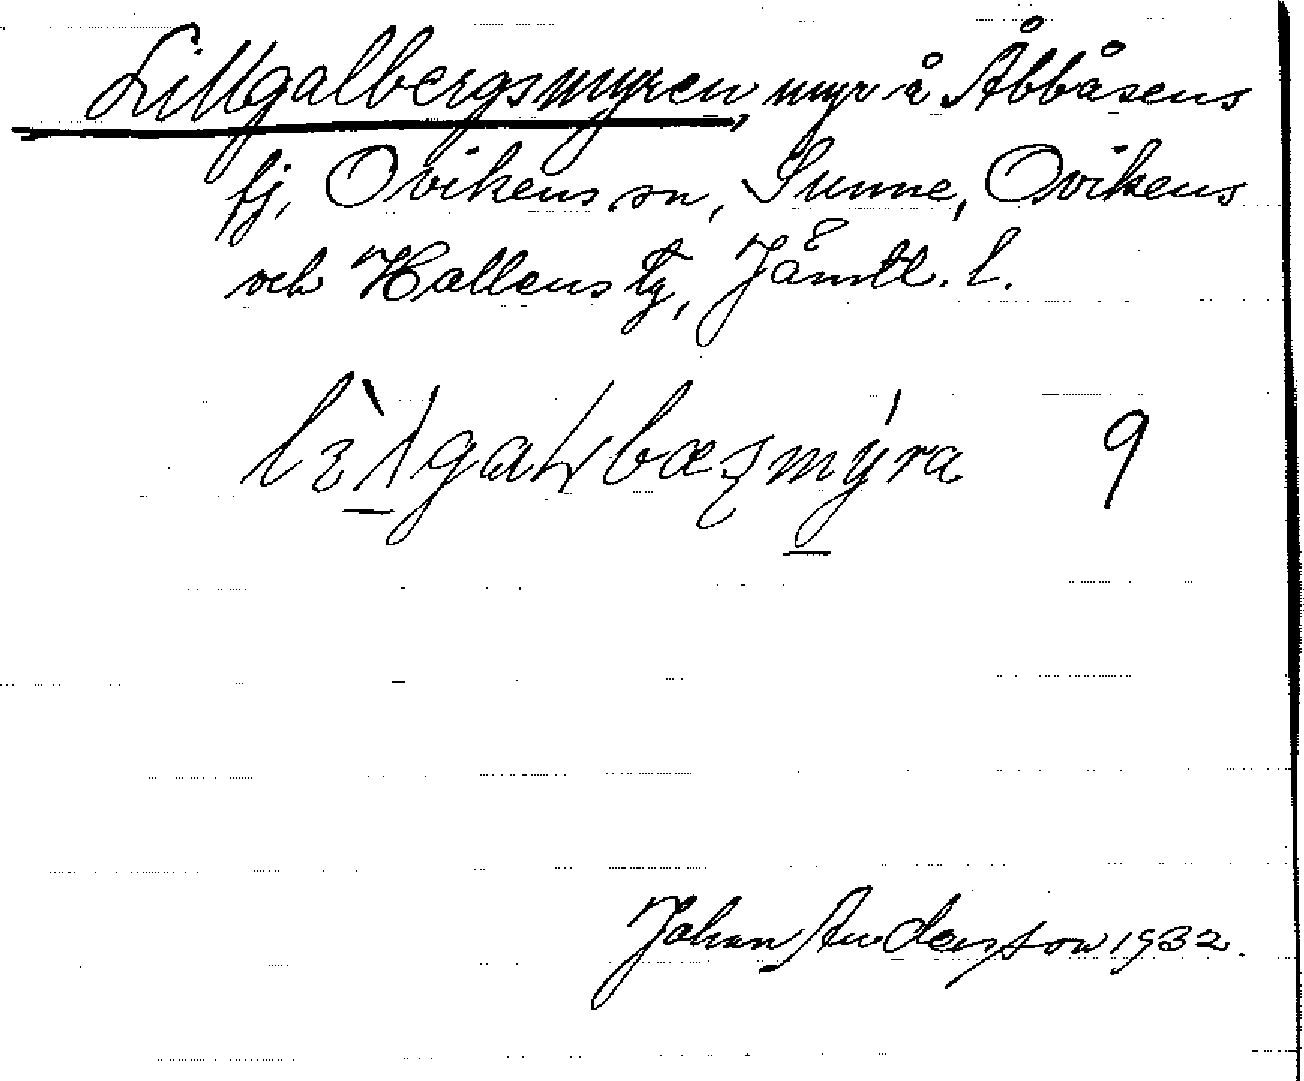 Lillgalbergsmyren, myr å Åbbåsens
fj, Ovikens sn, Sunne, Ovikens
och Hallens tg, Jämtl. l.
9
Johan Andersson 1932.